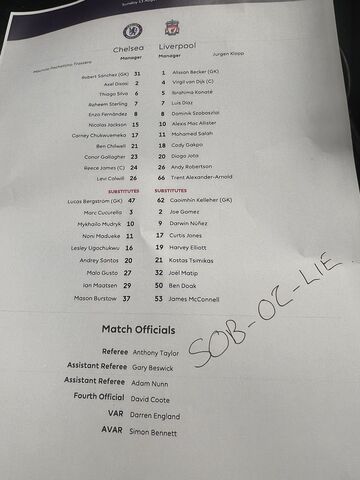 Sunday 13 Aug
Chelsea Liverpool
Manager Manager
Mauricio Pochettino Trossero Jurgen Klopp
Robert Sanchez (GK) 31 1 Alisson Becker (GK)
Axel Disasi 2 4 Virgil van Dijk (C)
Thiago Silva 6 5 Ibrahima Konaté
Raheem Sterling 7 7 Luis Díaz
Enzo Fernández 8 8 Dominik Szoboszlai
Nicolas Jackson 15 10 Alexis Mac Allister
Carney Chukwuemeka 17 11 Mohamed Salah
Ben Chilwell 21 18 Cody Gakpo
Conor Gallagher 23 20 Diogo Jota
Reece James (C) 24 26 Andy Robertson
Levi Colwill 26 66 Trent Alexander-Arnold
SUBSTITUTES SUBSTITUTES
Lucas Bergström (GK) 47 62 Caoimhin Kelleher (GK)
Marc Cucurella 3 2 Joe Gomez
Mykhailo Mudryk 10 9 Darwin Núñez
Noni Madueke 11 17 Curtis Jones
Lesley Ugochukwu 16 19 Harvey Elliott
Andrey Santos 20 21 Kostas Tsimikas
Malo Gusto 27 32 Joël Matip
Ian Maatsen 29 50 Ben Doak
Mason Burstow 37 53 James McConnell
Match Officials
Referee Anthony Taylor
Assistant Referee Gary Beswick
Assistant Referee Adam Nunn
Fourth Official David Coote
VAR Darren England
AVAR Simon Bennett
SOB-OZ-LIE